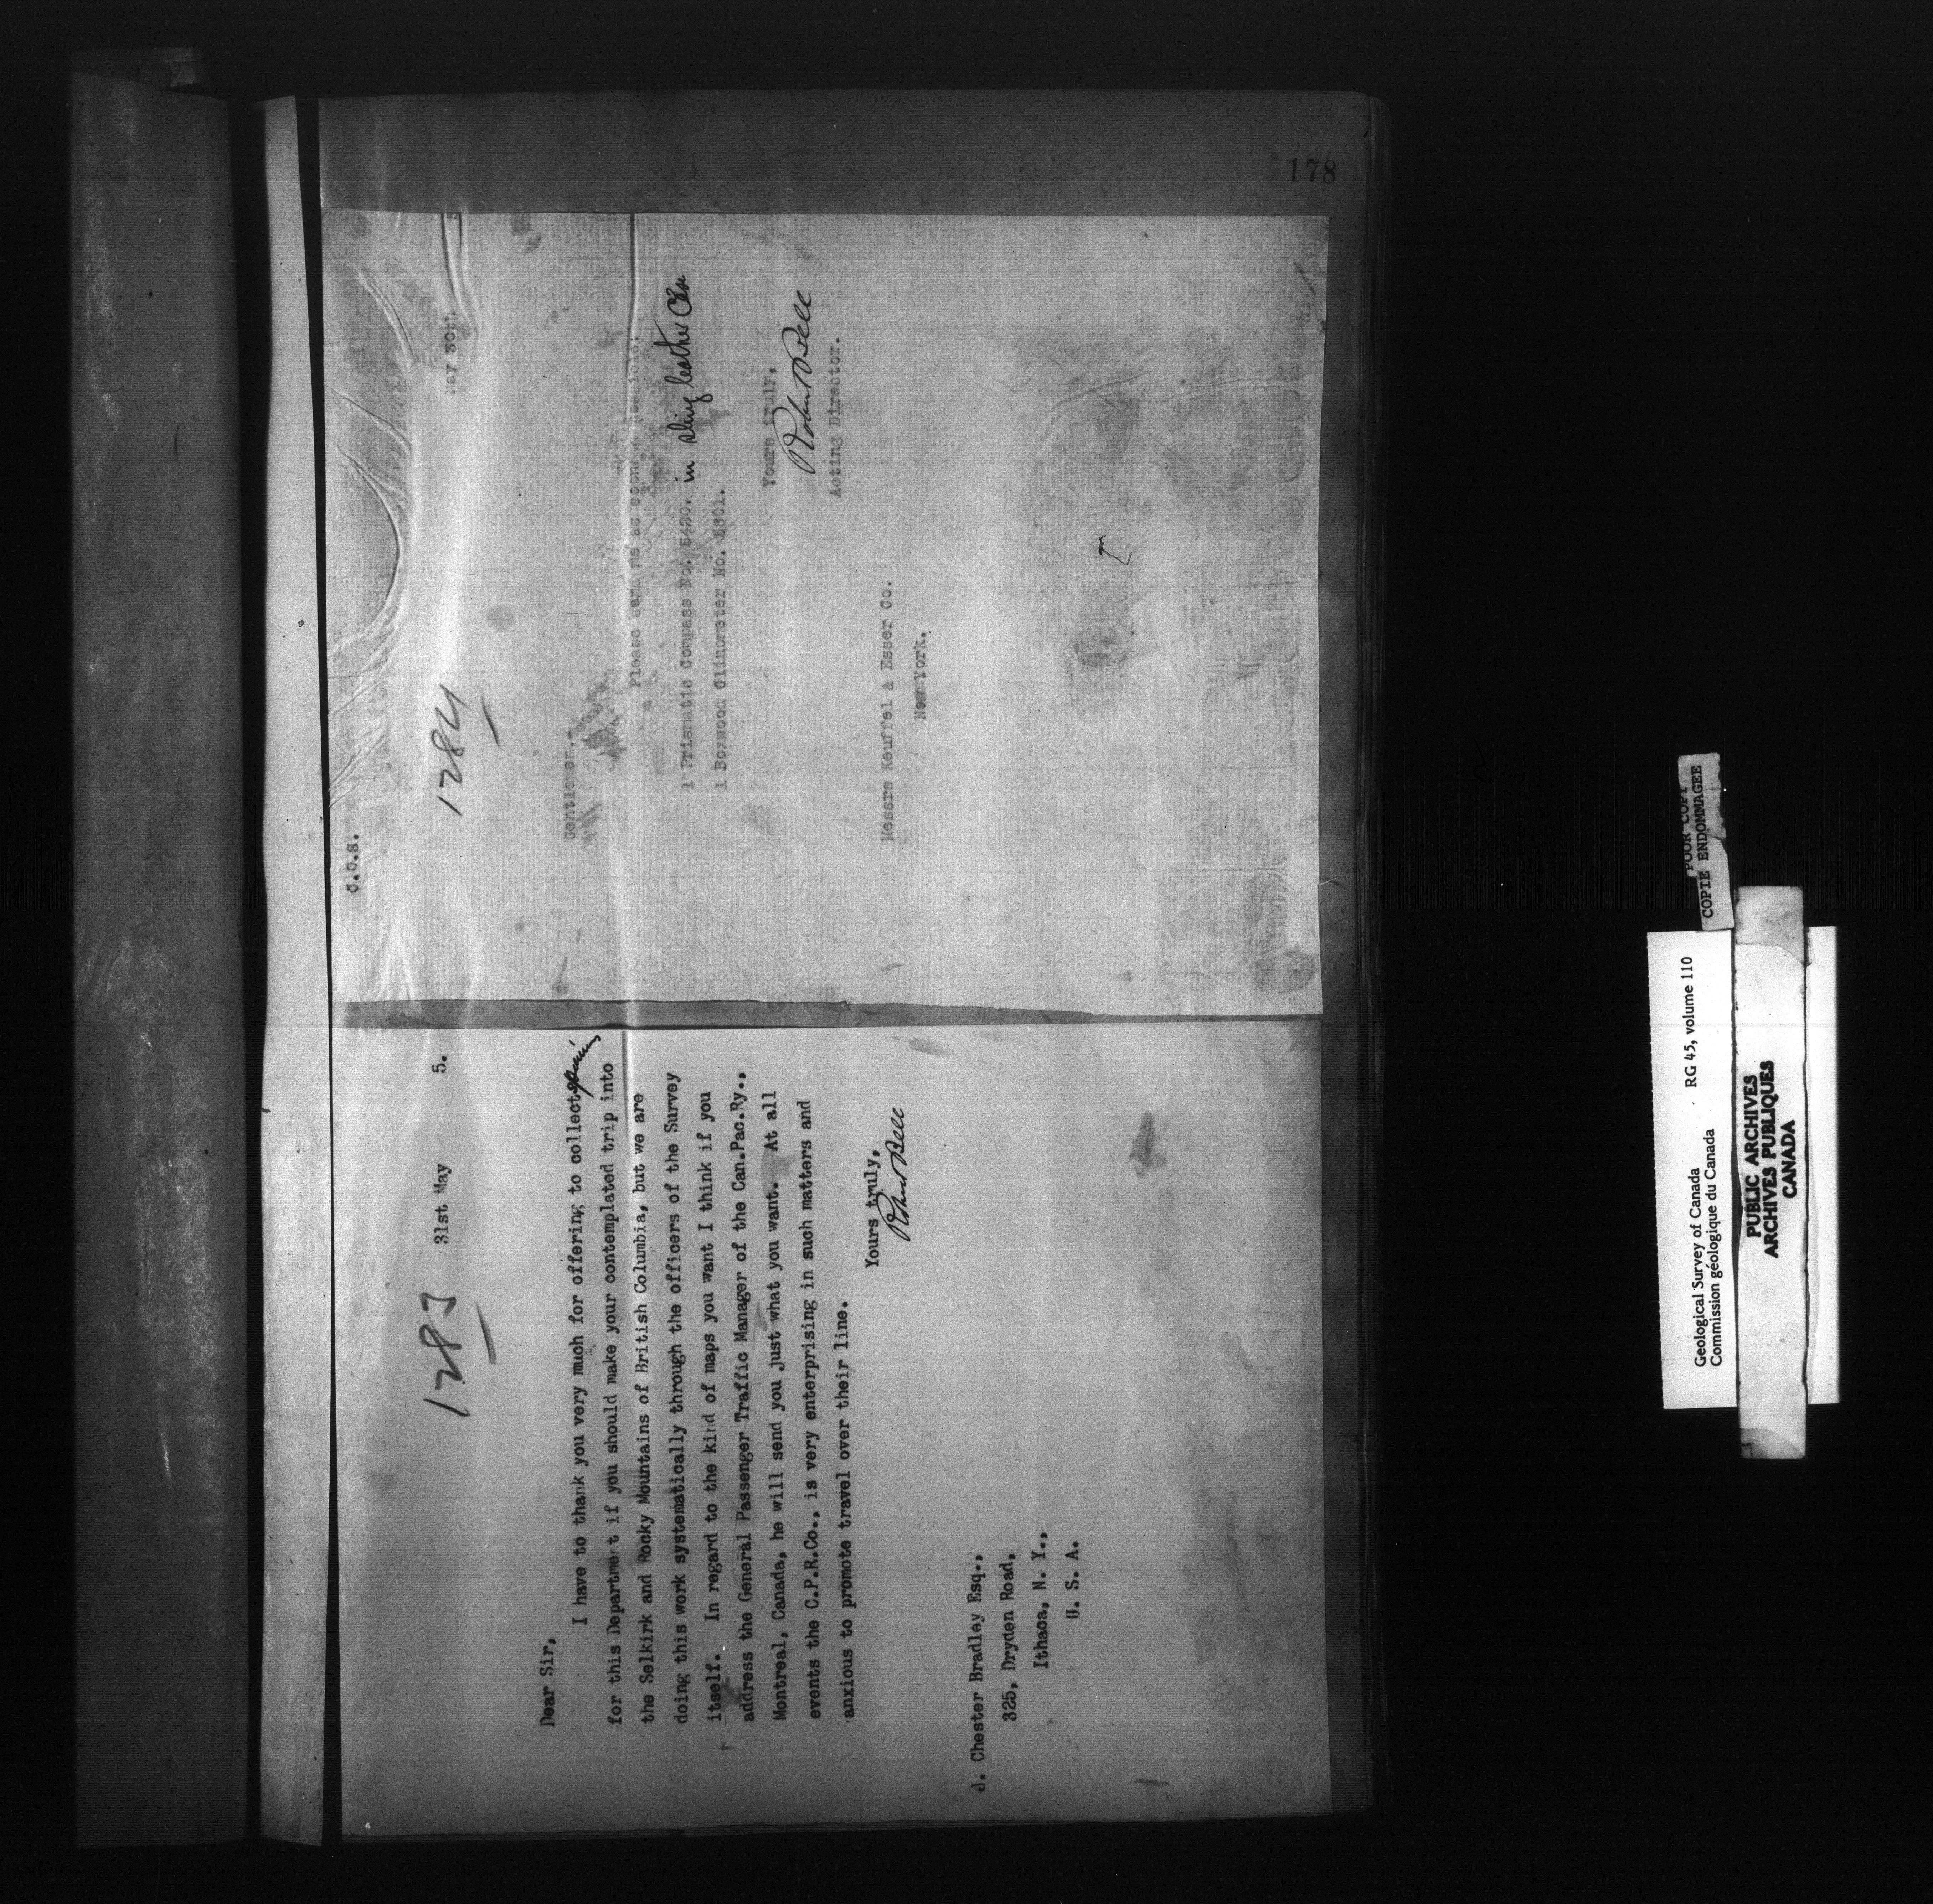 1283
31st May 5.
Dear Sir,
I have to thank you very much for offering to collect
for this Department if you should make your contemplated trip into
the Selkirk and Rocky Mountains of British Columbia, but we are
doing this work systematically through the officers of the Survey
itself. In regard to the kind of maps you want I think if you
address the General Passenger Traffic Manager of the Can.Pac.Ry.,
Montreal, Canada, he will send you just what you want. At all
events the C.P.R.Co., is very enterprising in such matters and
anxious to promote travel over their line.
Yours truly,
Robert Bell
J. Chester Bradley Esq.,
325, Dryden Road,
Ithaca, N. Y.,
U. S. A.
178
C.O.S.
1284
May 30th 5
Gentlemen,-
Please send me as soon as possible:
1 Prismatic Compass No. 5420. in sling leather Case
1 Boxwood Clinometer No. 5801.
Yours truly,
Robert Bell
Acting Director.
Messrs Keuffel & Esser Co.
New York.
POOR COPY
COPIE ENDOMMAGEE
Geological Survey of Canada RG 45, volume 110
Commission géologique du Canada
PUBLIC ARCHIVES
ARCHIVES PUBLIQUES
CANADA